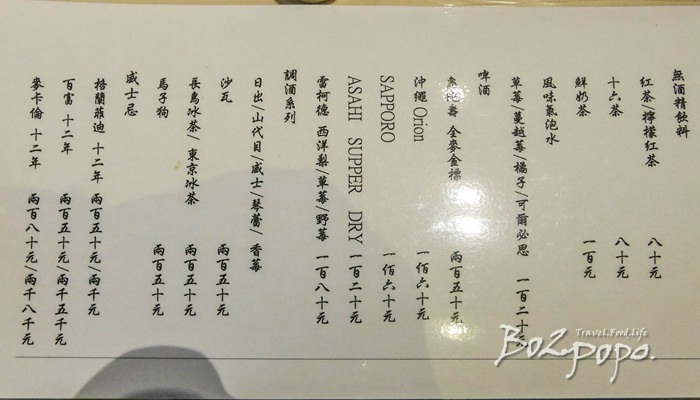 無酒精飲料
紅茶/檸檬紅茶 八十元
十六茶 八十元
鮮奶茶 一百元
風味氣泡水
草莓/蔓越莓/橘子/可爾必思 一百二十元
啤酒
全麥金標 兩百五十元
沖繩 Orion 一佰六十元
SAPPORO 一佰六十元
ASAHI SUPPER DRY 一百二十元
雷柯德 西洋梨/草莓/野莓 一百八十元
調酒系列
日出/山代目/威士/琴蕾/香莓
沙瓦 兩百五十元
長島冰茶/東京冰茶 兩百五十元
馬子狗 兩百五十元
威士忌
格蘭菲迪 十二年 兩百五十元/兩千元
百富 十二年 兩百五十元/兩千五千元
麥卡倫 十二年 兩百八十元/兩千八千元
Travel.Food.life
Bo2popo.